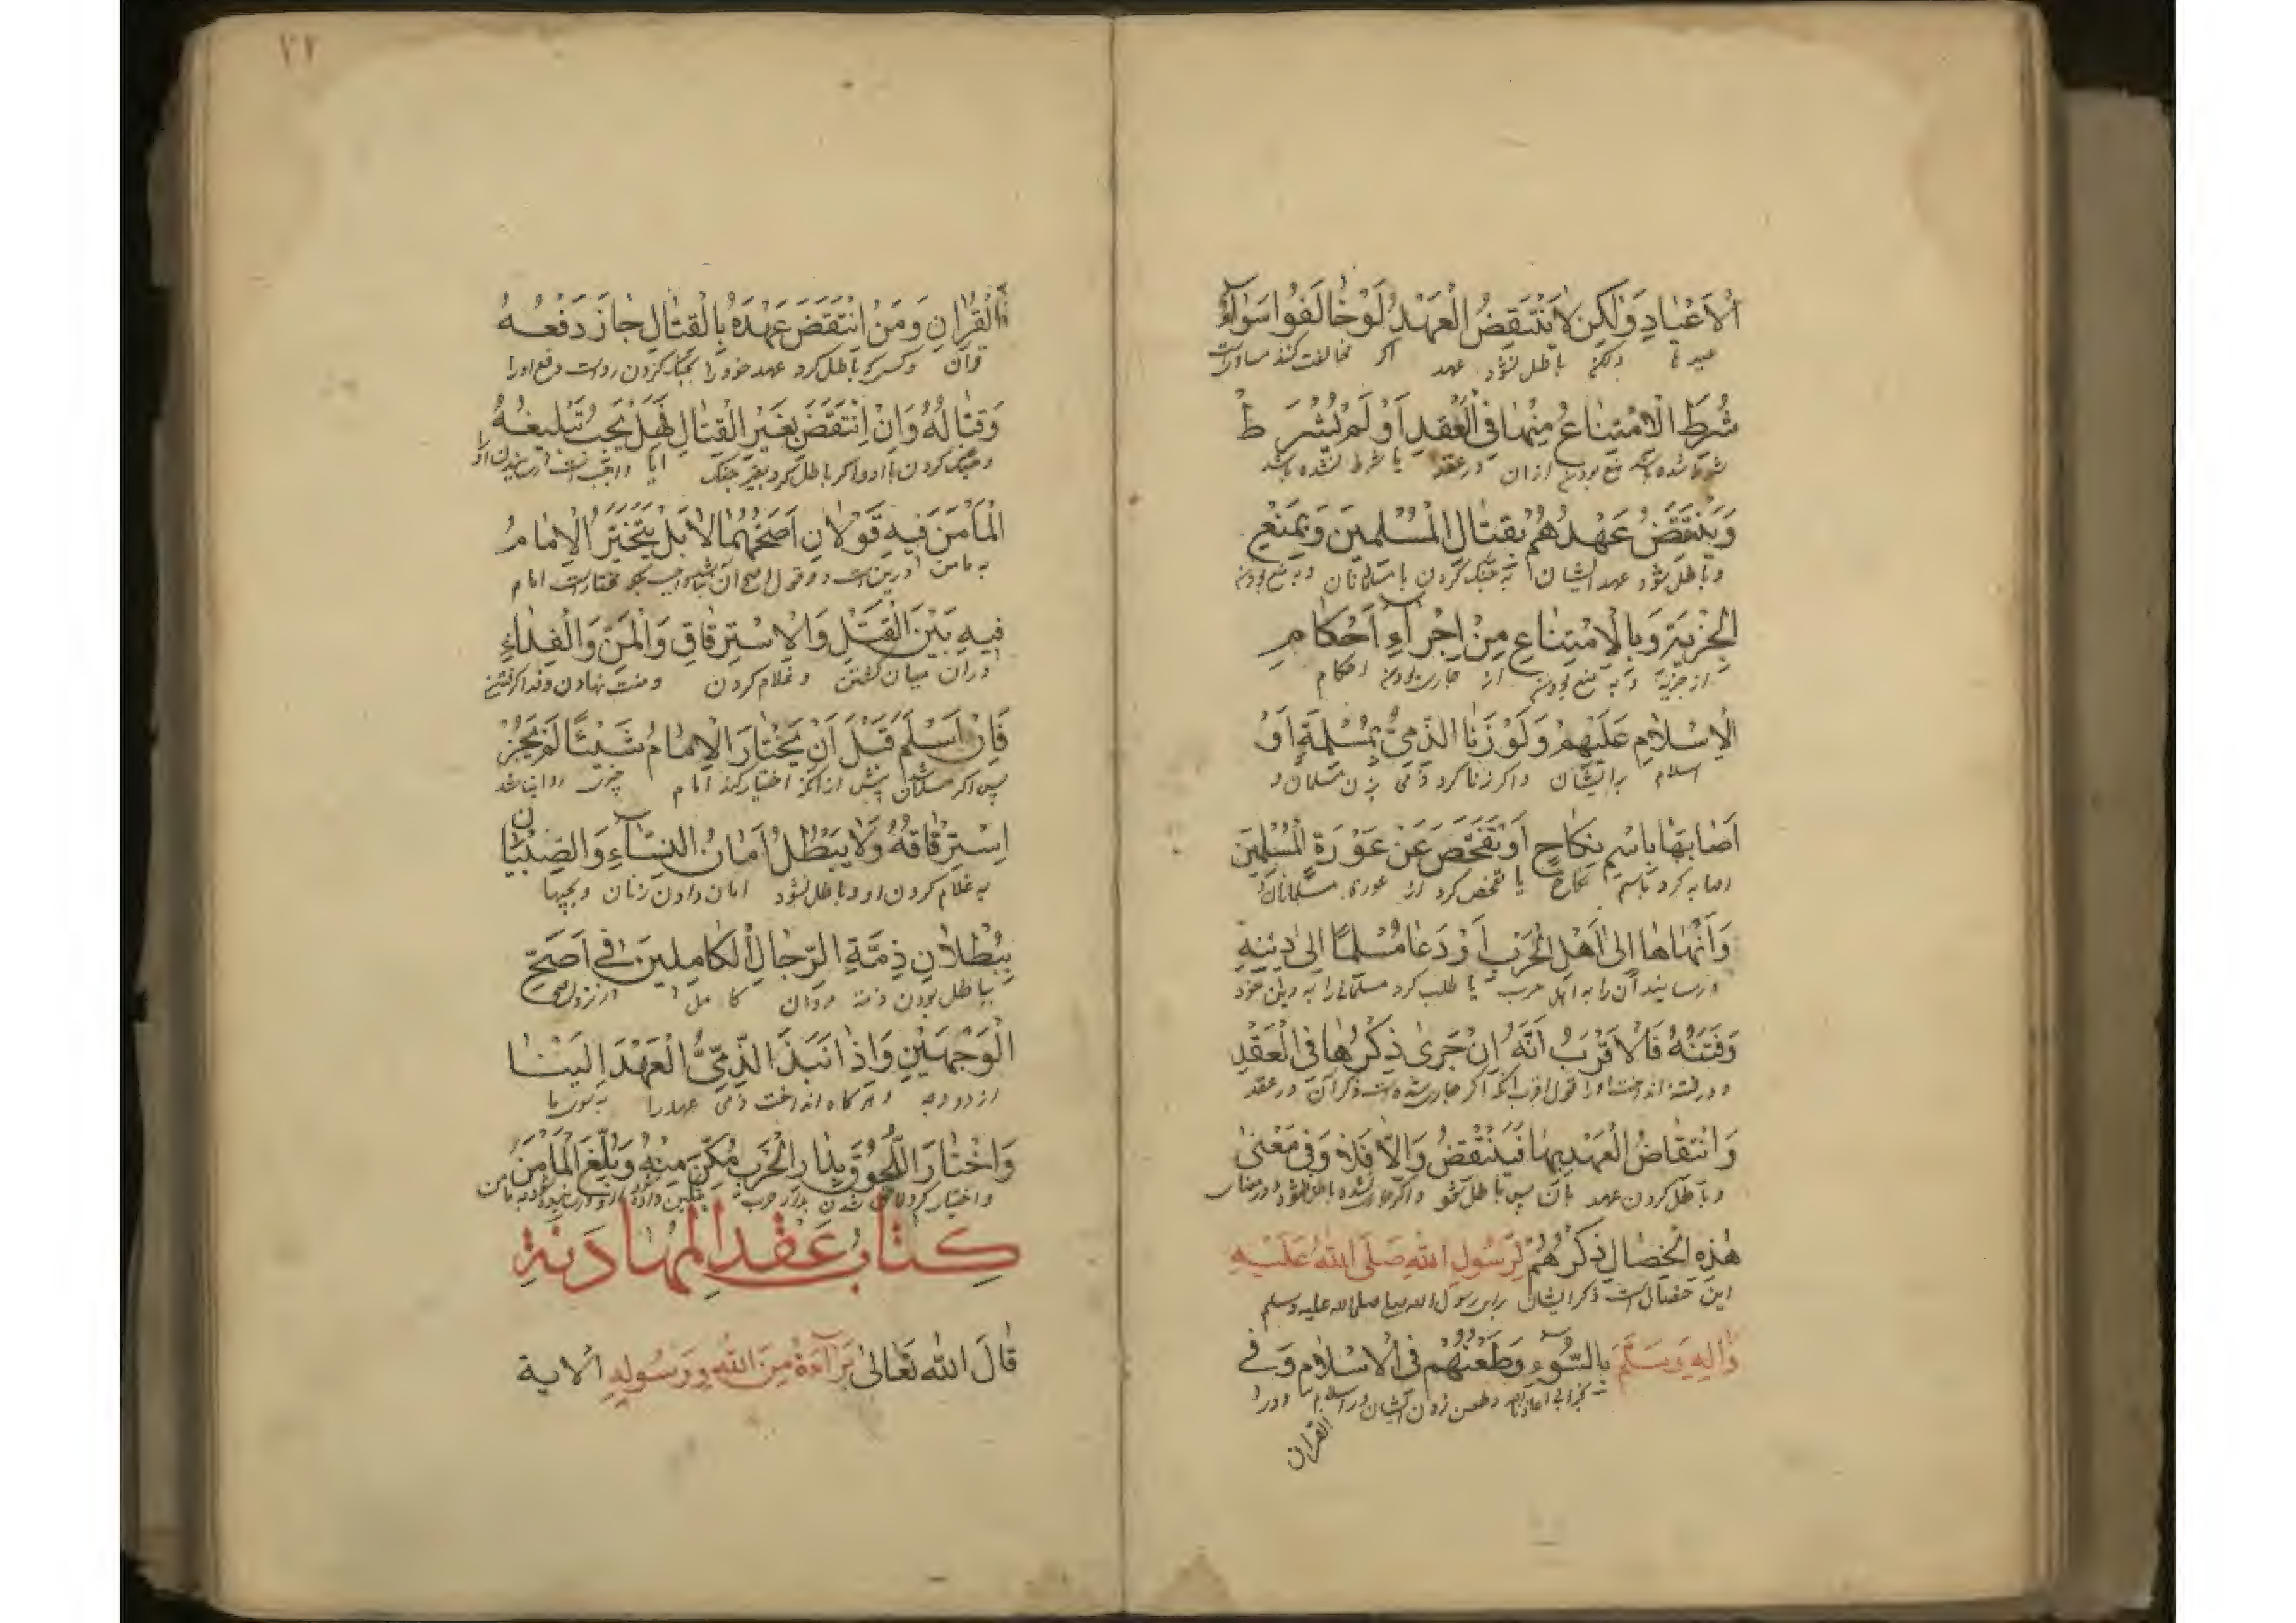 اْلاَعْيادِ وَلكِن لايَنْتَقِضُ الْعَهْدُ لَوْ خالَفُوا سَوٰآءٌ
عیدها ولکن باطل نشود عهد اکر مخالفت کنند مساویست
شُرِطَ الْاِمْتِناعُ مِنْها فِى الْعَقْدِ اَوْ لَمْ يُشْرَطْ
شرط شده باشد منع بودن ازان در عقد یا شرط نشده باشد
وَيَنْتَقِضُ عَهْدُهُمْ بِقِتالِ الْمُسْلِمينَ وَبِمَنْعِ
و باطل شود عهد ایشان به جنک کردن با مسلمانان و به منع بودن
الْجِزْيَةِ وَبِالْاِمْتِناعِ مِنْ اِجْرآءِ اَحْكامِ
از جزیه و به منع بودن از جاری بودن احکام
الْاِسْلامِ عَلَيْهِمْ وَلَوْ زَنَا الذِّمِىُّ بِمُسْلِمَةٍ اَوْ
اسلام برایشان و اکر زنا کرد ذمی بزن مسلمان و
اَصابَها بِاسْمِ نِكاحٍ اَوْ تَفَحَّصَ عَنْ عَوْرَةِ الْمُسْلِمينَ
اصابه کرد باسم نکاح یا تفحص کرد از عورة مسلمانان
وَاَنْهاها اِلىٰ اَهْلِ الْحَرْبِ اَوْ دَعا مُسْلِمًا اِلىٰ دينِهِ
و رسانید آن را به اهل حرب یا طلب کرد مسلمانی را به دین خود
وَفَتَنَهُ فَالْاَقْرَبُ اَنَّهُ اِنْ جَرىٰ ذِكْرُها فِى الْعَقْدِ
و در فتنه انداخت او را قول اقرب انکه اکر جاری شده است ذکر آن در عقد
وَانْتِقاضُ الْعَهْدِ بِها فَيَنْتَقِضُ وَاِلّا فَلا وَفى مَعْنىٰ
و باطل کردن عهد بآن پس باطل شود و اکر جاری نشده باطل نشود و در معنای
هٰذِهِ الْخِصالِ ذِكْرُهُمْ لِرَسُولِ اللهِ صَلَّى اللهُ عَلَيْهِ
این خصال است ذکر ایشان برای رسول الله صلی الله علیه وسلم
وَاٰلِهِ وَسَلَّمَ بِالسُّوءِ وَطَعْنُهُمْ فِى الْاِسْلامِ وَفى
و طعن زدن ایشان در اسلام و در
القران
٢١
الْقُرْاٰنِ وَمَنْ اِنْتَقَضَ عَهْدُهُ بِالْقِتالِ جازَ دَفْعُهُ
قران و کسی که باطل کرد عهد خود را بجنک کردن رواست دفع او را
وَقِتالُهُ وَاِنْ اِنْتَقَضَ بِغَيْرِ الْقِتالِ فَهَلْ يَجِبُ تَبْليغُهُ
و جنک کردن با او و اکر باطل کرد بغیر جنک ایا واجب است رسانیدن او را
الْمَأْمَنَ فيهِ قَوْلانِ اَصَحُّهُما لا بَلْ يَتَخَيَّرُ الْاِمامُ
به مامن درین است دو قول اصح آن نباشد واجب بلکه مختار است امام
فيهِ بَيْنَ الْقَتْلِ وَالْاِسْتِرْقاقِ وَالْمَنِّ وَالْفِداءِ
دران میان کشتن و غلام کردن و منت نهادن و فدا کرفتن
فَاِنْ اَسْلَمَ قَبْلَ اَنْ يَخْتارَ الْاِمامُ شَيْئًا لَمْ يَجُزْ
پس اکر مسلمان شد پیش از انکه اختیار کند امام چیزی روا نباشد
اِسْتِرْقاقُهُ وَلا يَبْطُلُ اَمانُ النِّسآءِ وَالصِّبْيان
به غلام کردن او و باطل نشود امان دادن زنان و بچها
بِبُطْلانِ ذِمَّةِ الرِّجالِ الْكامِلينَ فى اَصَحِّ
بباطل بودن ذمة مردان کامل در نزد اصح
الْوَجْهَيْنِ وَاِذا نَبَذَ الذِّمِّىُّ الْعَهْدَ اِلَيْنا
از دو وجه و هرکاه انداخت ذمی عهد را به سوی ما
وَاخْتارَ اللُّحُوقَ بِدارِ الْحَرْبِ مُكِّنَ مِنْهُ وَبُلِّغَ الْمَأْمَنَ
و اختیار کرد لاحق شدن بدار حرب تمکین داده شود از او و رسانیده شود به مامن
كِتابُ عَقْدِ الْمُهادَنَةِ
قالَ اللهُ تَعالىٰ بَرآءَةٌ مِنَ اللهِ وَرَسُولِهِ اْلاية